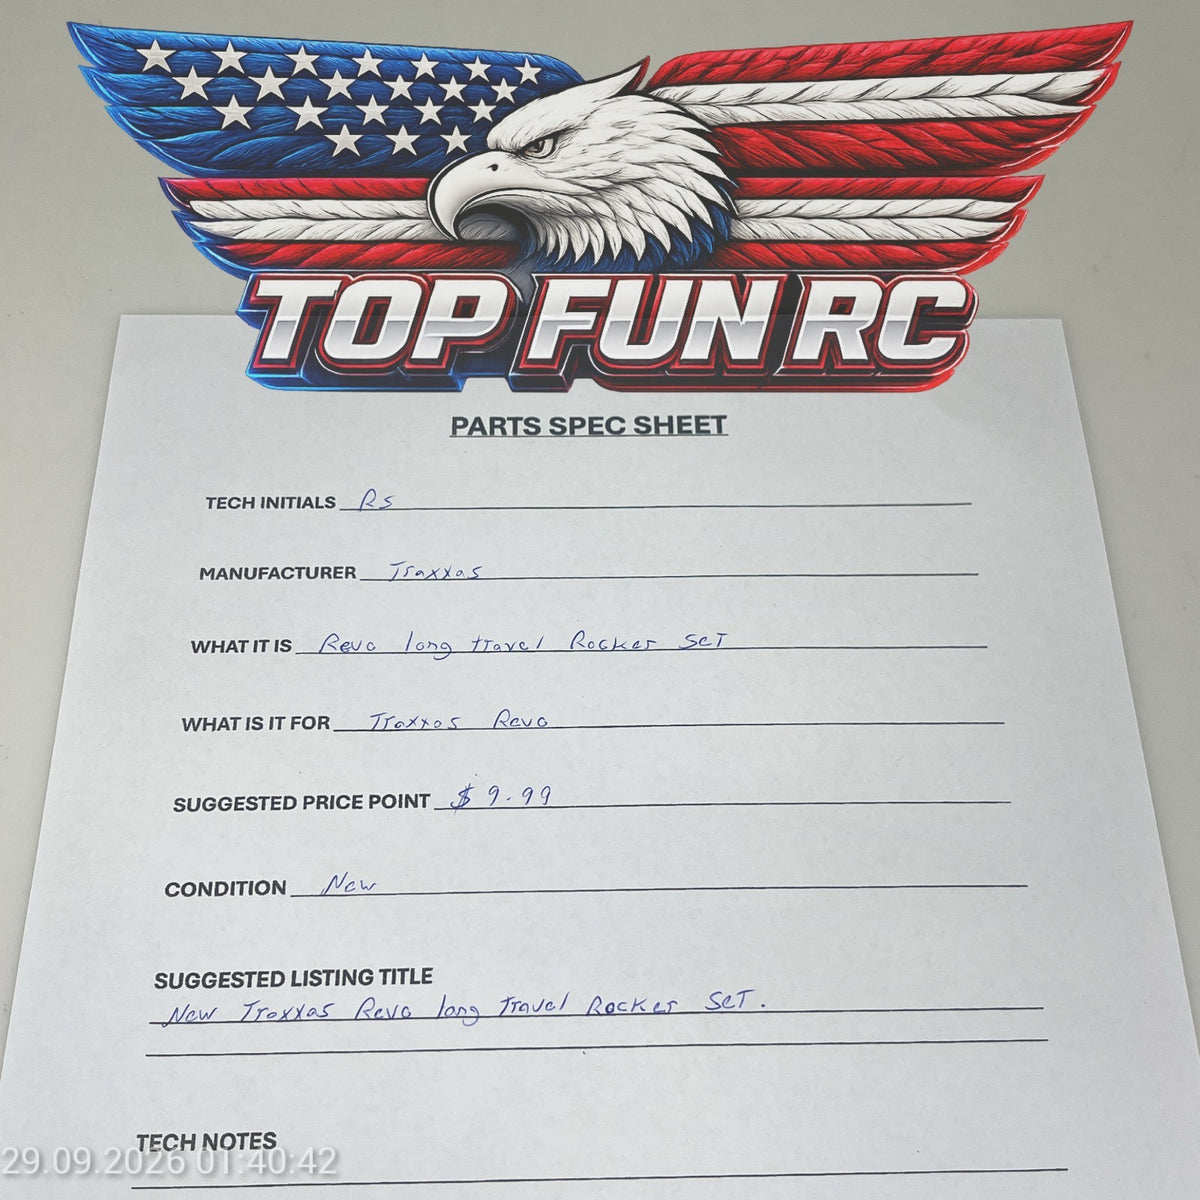 TOP FUN RC
PARTS SPEC SHEET
TECH INITIALS RS
MANUFACTURER Traxxas
WHAT IT IS Revo long travel Rocker SeT
WHAT IS IT FOR Traxxas Revo
SUGGESTED PRICE POINT $ 9.99
CONDITION New
SUGGESTED LISTING TITLE
New Traxxas Revo long Travel Rocker SeT.
TECH NOTES
29.09.2026 01:40:42